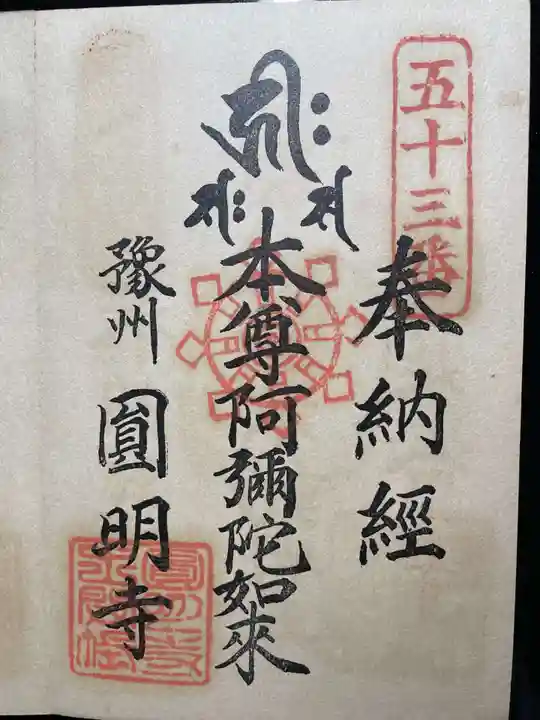 五十三番
奉納經
本尊阿彌陀如來
豫州 圓明寺